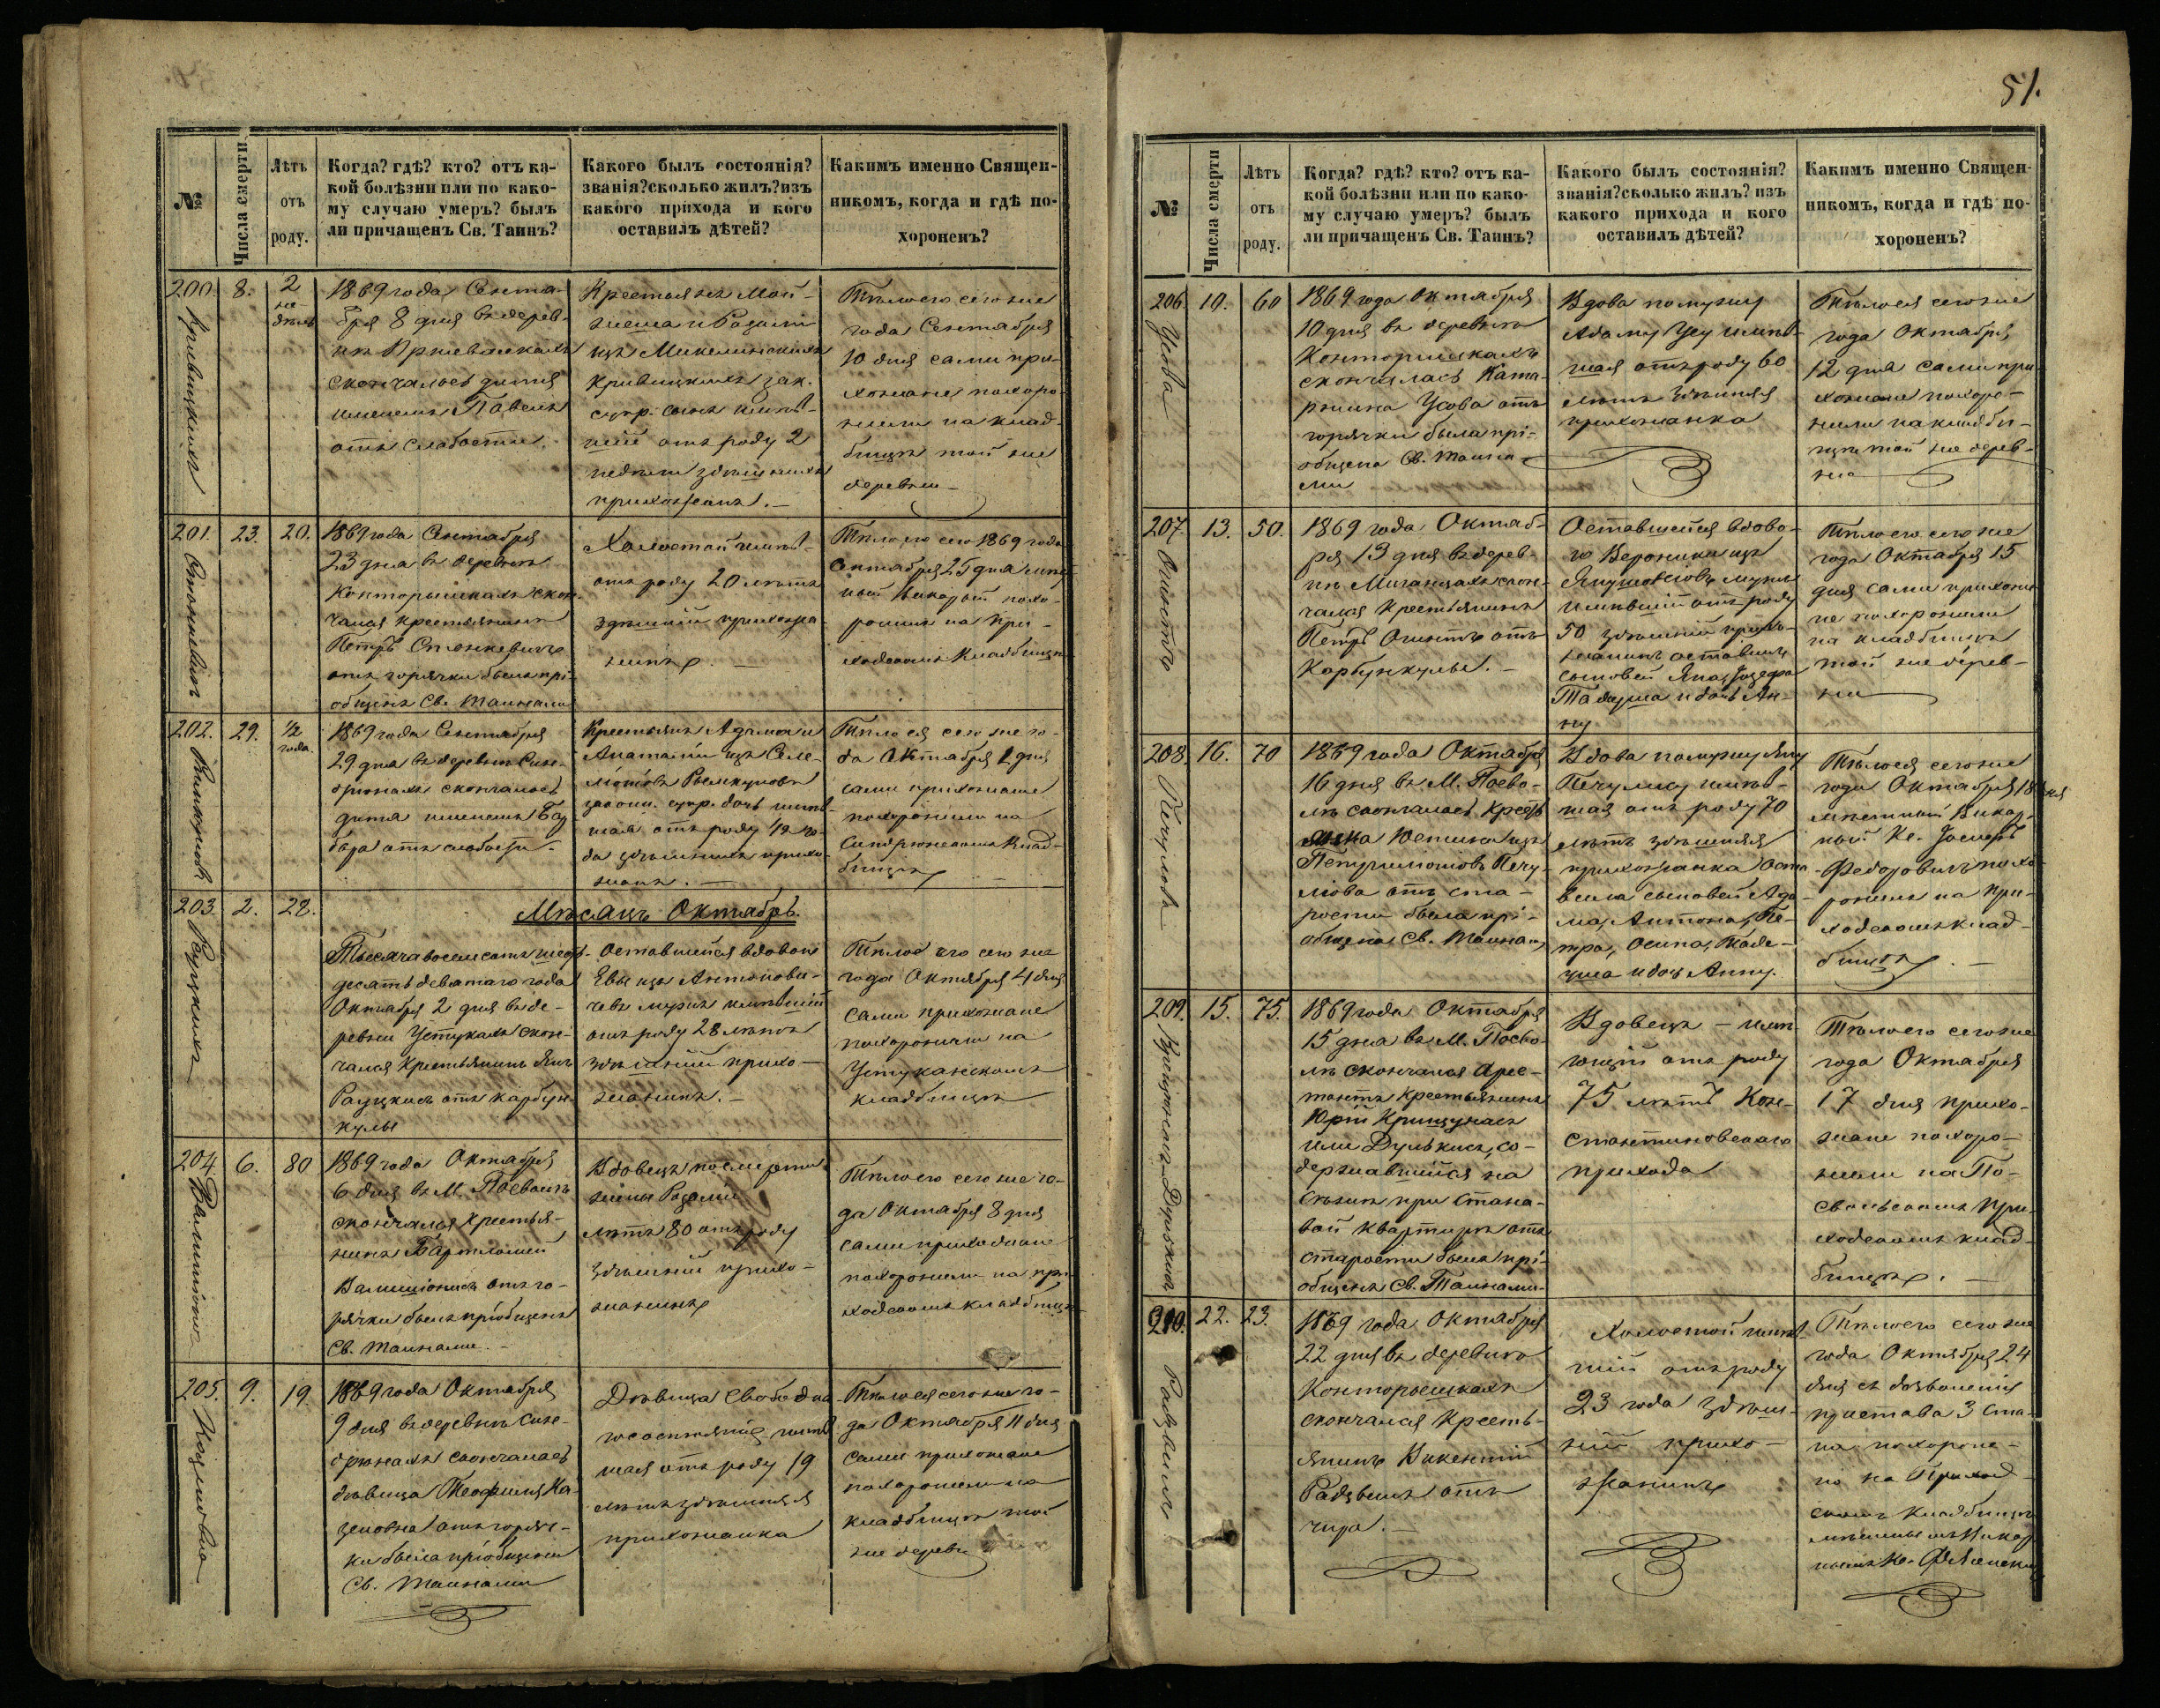 51.
№
Числа смерти
Лѣтъ
отъ
роду.
Когда? гдѣ? кто? отъ ка-
кой болѣзни или по како-
му случаю умеръ? былъ
ли причащенъ Св. Таинъ?
Какого былъ состоянія?
званія? сколько жилъ? изъ
какого прихода и кого
оставилъ дѣтей?
Какимъ именно Священ-
никомъ, когда и гдѣ по-
хороненъ?
200.
8.
2
не-
дѣль
1869 года Сентя-
бря 8 дня въ дерев-
нѣ
скончалось дитя
именемъ Павелъ
отъ слабости.
Крестьянъ Мой-
жеша и Розаліи
изъ
зак.
супр. сынъ имѣв-
шій отъ роду 2
недели здѣшнихъ
прихожанъ.
Тѣло его сего же
года Сентября
10 дня сами при-
хожане похоро-
нили на клад-
бищѣ той же
деревни
201.
23.
20.
1869 года Сентября
23 дня въ деревнѣ
Конторышкахъ скон-
чался крестьянинъ
Петръ Станкевичъ
отъ горячки былъ прі-
общенъ Св. Тайнами
Холостой имѣв-
отъ роду 20 лѣтъ
здѣшній прихожа-
нинъ.
Тѣло его сего 1869 года
Сентября 25 дня
похо-
ронилъ на при-
ходскомъ кладбищѣ
202.
29.
1/2
года.
1869 года Сентября
29 дня въ деревнѣ Синд-
рюнахъ скончалось
дитя именемъ Бар-
бара отъ слабости.
Крестьянъ Адама и
Анатоліи изъ
законн. супр. дочь имѣв-
шая отъ роду 1/2 го-
да здѣшнихъ прихо-
жанъ.
Тѣло ея сего же го-
да Октября 1 дня
сами прихожане
похоронили на
Синдрюнскомъ клад-
бищѣ
203.
2.
28.
Мѣсяцъ Октябрь.
Тысяча восемсотъ шест-
десятъ девятаго года
Октября 2 дня въ де-
ревни Устукахъ скон-
чался крестьянинъ Янъ
Рауцкисъ отъ карбун-
кулы
Оставшейся вдовою
Евы изъ Антонови-
чевъ мужъ имѣвшій
отъ роду 28 лѣтъ
здѣшній прихо-
жанинъ.
Тѣло его сего же
года Октября 4 дня
сами прихожане
похоронили на
Устуканскомъ
кладбищѣ
204.
6.
80
1869 года Октября
6 дня въ М. Посволѣ
скончался крестья-
нинъ Бартломей
Валишонисъ отъ го-
рячки былъ пріобщенъ
Св. Тайнами.
Вдовецъ по смерти
жены Розаліи
лѣтъ 80 отъ роду
здѣшній прихо-
жанинъ
Тѣло его сего же го-
да Октября 8 дня
сами прихожане
похоронили на при-
ходскомъ кладбищѣ
205.
9.
19.
1869 года Октября
9 дня въ деревнѣ Синд-
рюнахъ скончалась
дѣвица Теофиля
отъ горяч-
ки была пріобщена
Св. Тайнами
Дѣвица свободна-
го состоянія имѣв-
шая отъ роду 19
лѣтъ здѣшняя
прихожанка
Тѣло ея сего же го-
да Октября 11 дня
сами прихожане
похоронили на
кладбищѣ той
же деревни
№
Числа смерти
Лѣтъ
отъ
роду.
Когда? гдѣ? кто? отъ ка-
кой болѣзни или по како-
му случаю умеръ? былъ
ли причащенъ Св. Таинъ?
Какого былъ состоянія?
званія? сколько жилъ? изъ
какого прихода и кого
оставилъ дѣтей?
Какимъ именно Священ-
никомъ, когда и гдѣ по-
хороненъ?
206.
Усова
10.
60
1869 года Октября
10 дня въ деревнѣ
Конторишкахъ
скончалась Ката-
ржина Усова отъ
горячки была прі-
общена Св. Тайна-
ми
Вдова по мужу
Адаму Усу имѣв-
шая отъ роду 60
лѣтъ здѣшняя
прихожанка
Тѣло ея сего же
года Октября
12 дня сами при-
хожане похоро-
нили на кладби-
щѣ той же дерев-
ни
207.
13.
50.
1869 года Октяб-
ря 13 дня въ дерев-
нѣ скон-
чался крестьянинъ
Петръ Огинтъ отъ
Карбункулы.
Оставшейся вдово-
ю Вероники изъ
Янушовскихъ мужъ
имѣвшій отъ роду
50 здѣшній прихо-
жанинъ оставилъ
сыновей Яна, Іозефа
Тадеуша и дочь Ан-
ну
Тѣло его сего же
года Октября 15
дня сами прихожа-
не похоронили
на кладбищѣ
той же дерев-
ни
208.
16.
70
1869 года Октября
16 дня въ М. Посво-
лѣ скончалась крест
янка Юстина изъ
Печу-
лова отъ ста-
рости была прі-
общена Св. Тайнами
Вдова по мужу Яну
Печулису имѣв-
шая отъ роду 70
лѣтъ здѣшняя
прихожанка оста
вила сыновей Ада-
ма, Антона, Пе-
тра, Осипа, Таде-
уша и дочь Анну.
Тѣло ея сего же
года Октября 18 дня
мѣстный Викар-
ный Кс. Іосифъ
Федоровичъ похо-
ронилъ на при-
ходскомъ клад-
бищѣ.
209.
15.
75.
1869 года Октября
15 дня въ М. Посво-
лѣ скончался арес-
тантъ крестьянинъ
Юрій Крищунасъ
или Дулькисъ, со-
державшійся на
съѣзжѣ при Стана-
вой квартирѣ отъ
старости былъ прі-
общенъ Св. Тайнами.
Вдовецъ – имѣ-
ющій отъ роду
75 лѣтъ Кон-
стантиновскаго
прихода
Тѣло его сего же
года Октября
17 дня прихо-
жане похоро-
нили на По-
свольскомъ при-
ходскомъ клад-
бищѣ.
210.
22.
23.
1869 года Октября
22 дня въ деревнѣ
Конторышкахъ
скончался Кресть-
янинъ Викентій
Радзвилъ отъ
чира.
Холостой имѣв-
шій отъ роду
23 года здѣш-
ній прихо-
жанинъ
Тѣло его сего же
года Октября 24
дня съ дозволенія
пристава 3 ста-
на похороне-
но на Приход-
скомъ кладбищѣ
мѣстнымъ Викар-
нымъ Кс.